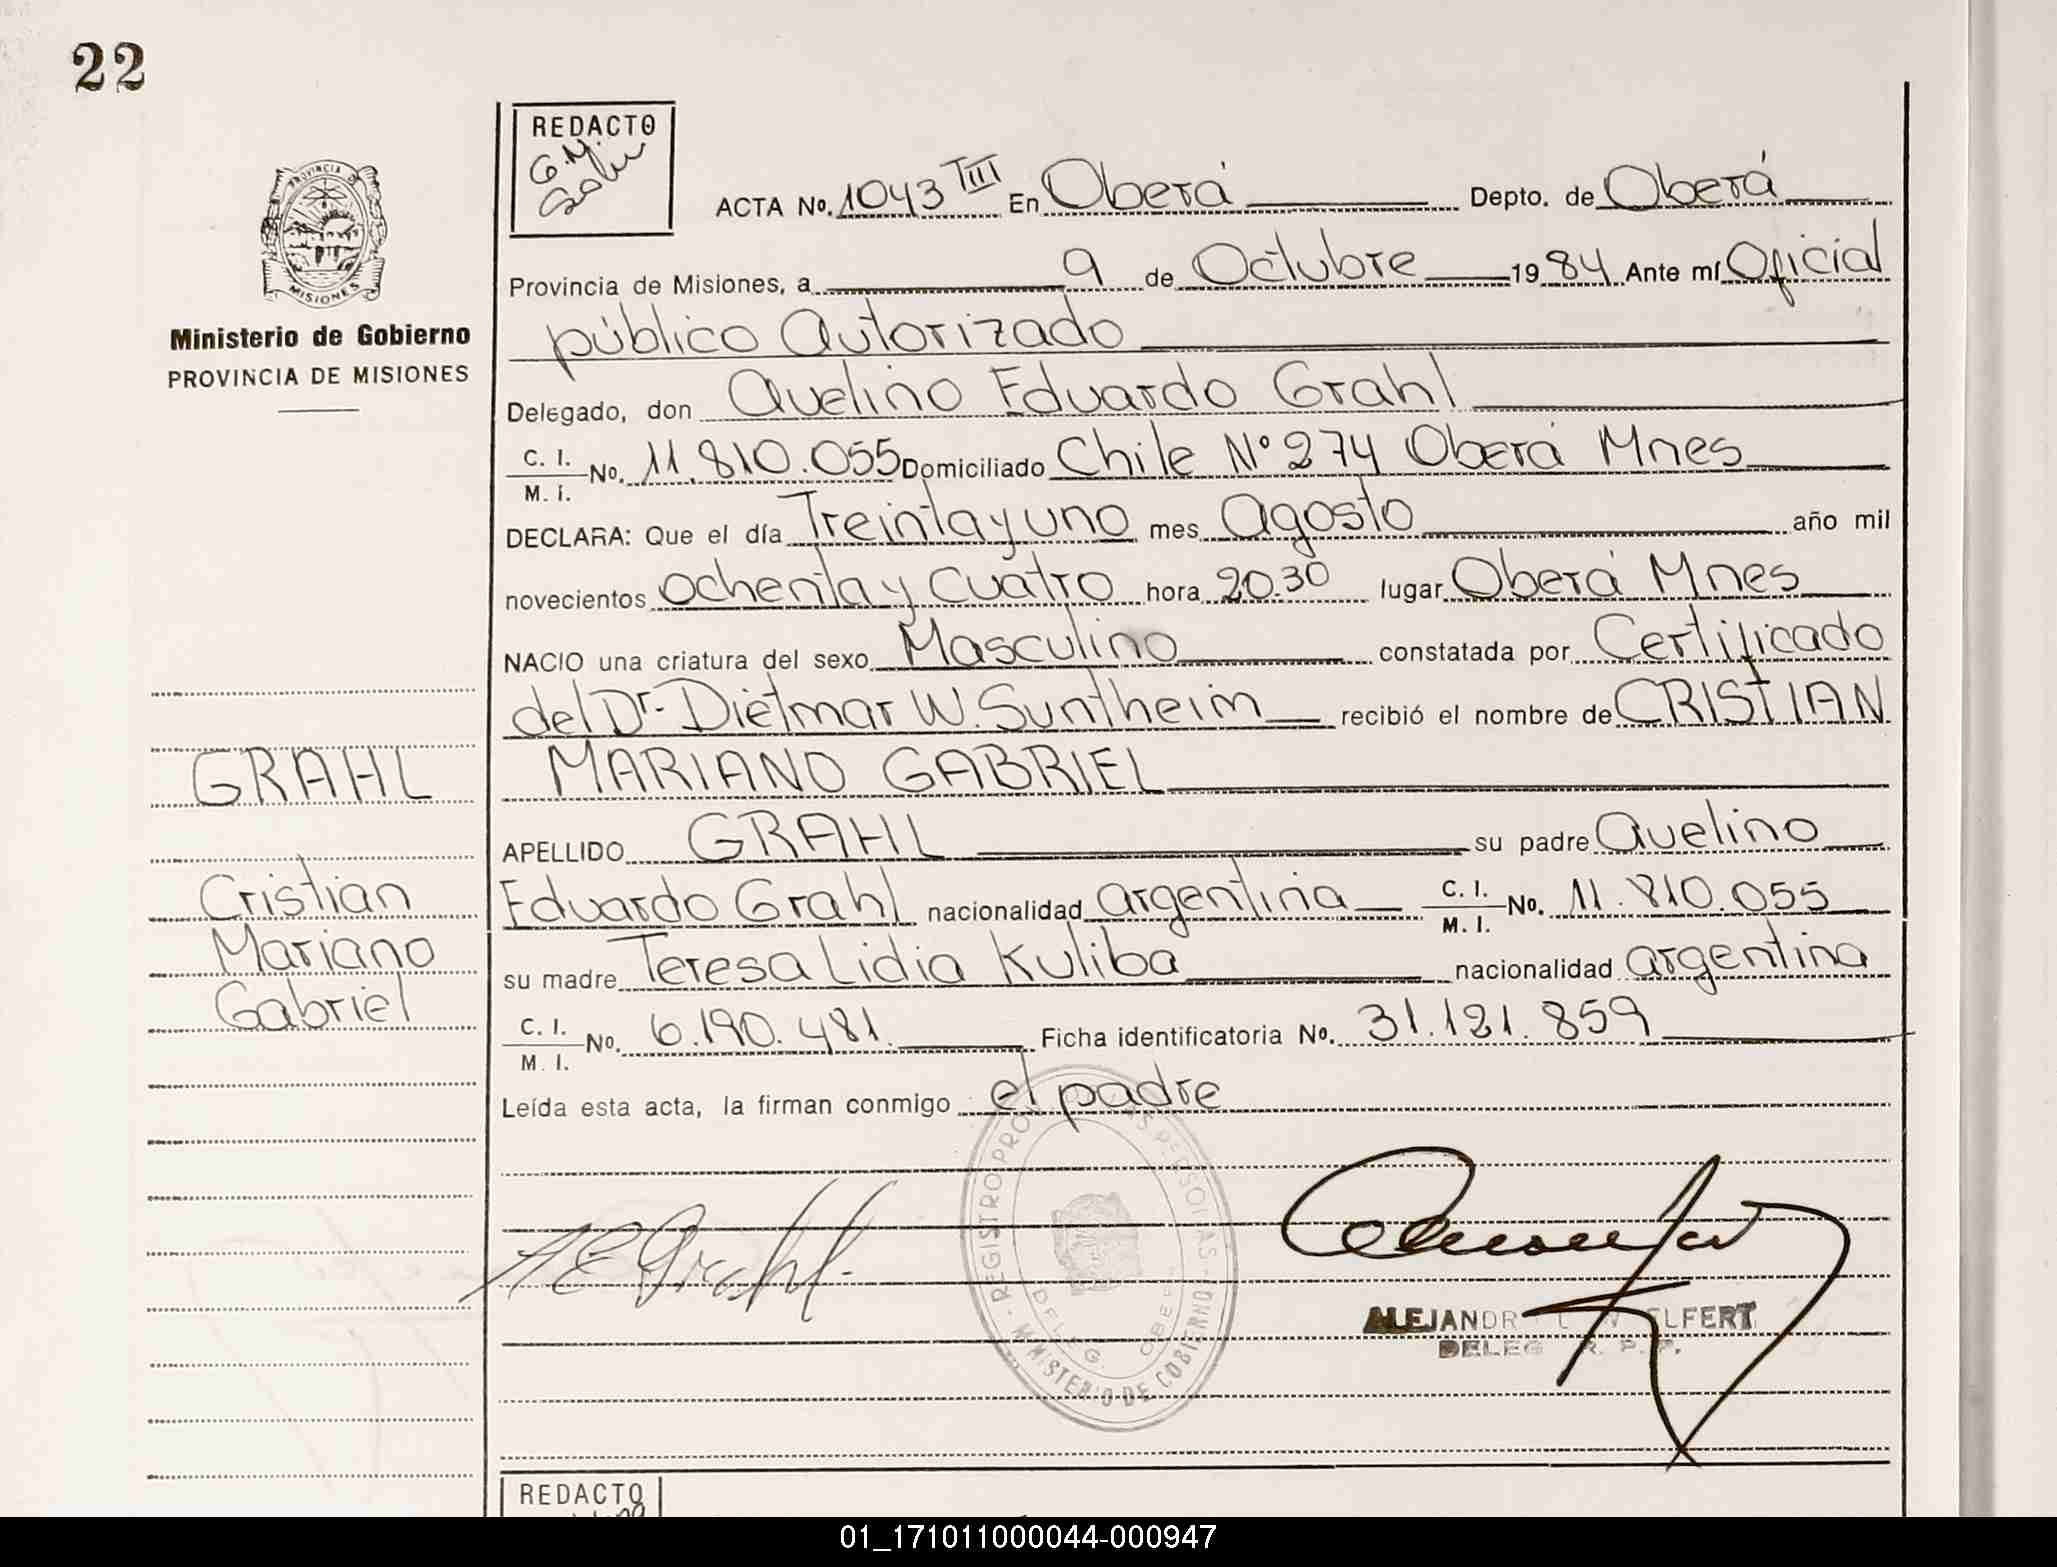 22
REDACTO
G.M.
PROVINCIA DE
MISIONES
Ministerio de Gobierno
PROVINCIA DE MISIONES
ACTA No. 1043 III En Oberá Depto. de Oberá
Provincia de Misiones, a 9 de Octubre 1984 Ante mí Oficial
público Autorizado
Delegado, don Avelino Eduardo Grahl
C. I. M. I. No. 11.810.055 Domiciliado Chile Nº 274 Oberá Mnes
DECLARA: Que el día Treinta y uno mes Agosto año mil
novecientos ochenta y cuatro hora 20.30 lugar Oberá Mnes
NACIO una criatura del sexo Masculino constatada por Certificado
del Dr. Dietmar W. Suntheim recibió el nombre de CRISTIAN
MARIANO GABRIEL
APELLIDO GRAHL su padre Avelino
Eduardo Grahl nacionalidad argentina C. I. M. I. No. 11.810.055
su madre Teresa Lidia Kuliba nacionalidad argentina
C. I. M. I. No. 6.190.481. Ficha identificatoria No. 31.121.859
Leída esta acta, la firman conmigo el padre
GRAHL
Cristian
Mariano
Gabriel
A E Grahl.
REGISTRO PERSONAS
MINISTERIO DE GOBIERNO
DELEG. OBERÁ
ALEJANDR ELFERT
DELEG R. P. P.
REDACTO
01_171011000044-000947